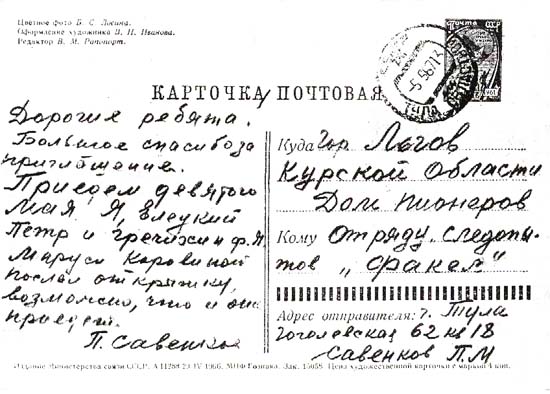 Цветное фото Б. С. Лосина.
Оформление художника В. П. Иванова.
Редактор В. М. Рапопорт.
ПОЧТА СССР
ТУЛА
КАРТОЧКА ПОЧТОВАЯ
Дорогие ребята.
Большое спасибо за
приглашение.
Приедем девятого
Мая Я, Елецкий
Петр и Гречихин Ф.Я.
Марусе Коровиной
послал открытку,
возможно, что и она
приедет.
П. Савенков
Куда гор Льгов
Курской Области
Дом пионеров
Кому Отряду следопы-
тов „Факел"
Адрес отправителя: г. Тула
Гоголевская 62 кв 18
Савенков П.М
Издание Министерства связи СССР. А 11288 29/IV 1966. МПФ Гознака. Зак. 15058. Цена художественной карточки с маркой 4 коп.